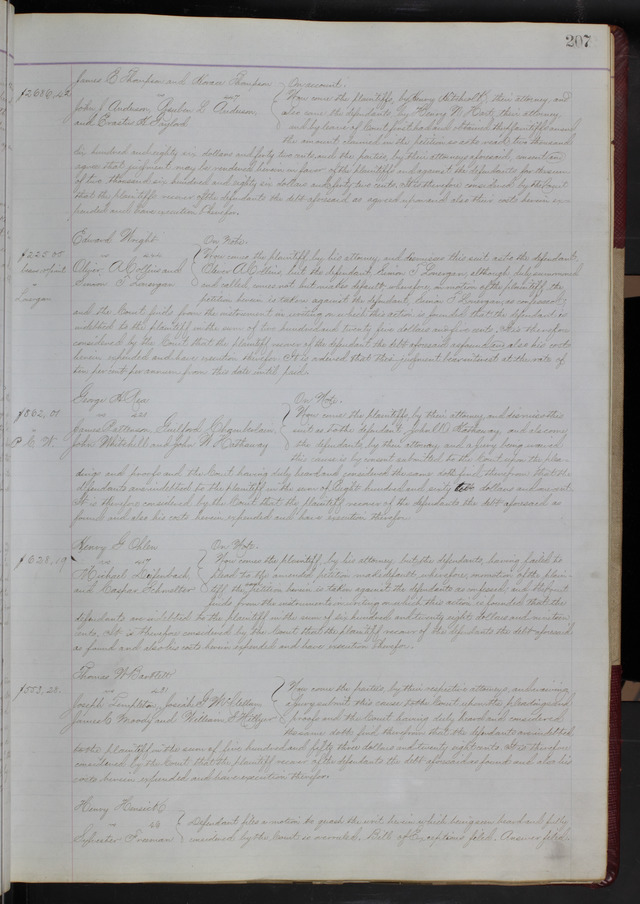 207
James B Thompson and Thompson
On account.
$2686.42
vs 447
Now come the plaintiffs, by Henry Hitchcock, their attorney, and
John J. Anderson, L. Anderson,
also come the defendants, by Henry N. Hart, their attorney,
and Erastus H.
and by leave of Court first had and obtained
the amount claimed in the petition so as to read two thousand
six hundred and eighty six dollars and forty two cents, and the parties, by their attorneys aforesaid, consent and
agree that judgment may be rendered herein in favor of the plaintiffs and against the defendants for the sum
of two thousand six hundred and eighty six dollars and forty two cents. It is therefore considered by the Court
that the plaintiffs recover of the defendants the debt aforesaid as agreed upon and also their costs herein ex-
pended and have execution therefor.
Edward Wright
On Note.
$225.00
vs
Now comes the plaintiff, by his attorney, and dismisses this suit as to the defendant,
Oliver A. Collins and
Oliver A. Collins, but the defendant, Simon S. Lonergan, although duly summoned
Simon S. Lonergan
and called, comes not but makes default; wherefore, on motion of the plaintiff, the
petition herein is taken against the defendant, Simon S. Lonergan, as confessed;
and the Court finds from the instrument in writing on which this action is founded, that the defendant is
indebted to the plaintiff in the sum of two hundred and twenty five dollars and five cents. It is therefore
considered by the Court that the plaintiff recover of the defendant the debt aforesaid as found and also his costs
herein expended and have execution therefor. It is ordered that this judgment bear interest at the rate of
ten per cent per annum from this date until paid.
George R. Rea
On Note.
$862.01
vs
Now come the plaintiffs, by their attorney, and dismiss this
P. C. W.
James Patterson, Guilford Chamberlain,
suit as to the defendant, John W. Hathaway, and also come
John Whitehill and John W. Hathaway
the defendants, by their attorney, and a jury being waived
this cause is by consent submitted to the Court upon the plea-
dings and proofs and the Court having duly heard and considered the same doth find therefrom that the
defendants are indebted to the plaintiff in the sum of Eight hundred and sixty two dollars and one cent.
It is therefore considered by the Court that the plaintiff recover of the defendants the debt aforesaid as
found and also his costs herein expended and have execution therefor.
Henry G. Ohlen
On Note.
$628.19
vs
Now comes the plaintiff, by his attorney, but the defendants, having failed to
Michael Deifenbach
plead to the amended petition, make default; wherefore, on motion of the plain-
and Caspar Schwetter
tiff, the petition herein is taken against the defendants as confessed, and the Court
finds, from the instruments in writing on which this action is founded, that the
defendants are indebted to the plaintiff in the sum of six hundred and twenty eight dollars and nineteen
cents. It is therefore considered by the Court that the plaintiff recover of the defendants the debt aforesaid
as found and also his costs herein expended and have execution therefor.
Thomas W. Bartlett
$553.28
vs
Now come the parties, by their respective attorneys, and waiving
Joseph Templeton, Josiah G. McClellan
a jury submit this cause to the Court upon the pleadings and
James C. Moody and William Hillyer
proofs and the Court having duly heard and considered
the same doth find therefrom that the defendants are indebted
to the plaintiff in the sum of five hundred and fifty three dollars and twenty eight cents. It is therefore
considered by the Court that the plaintiff recover of the defendants the debt aforesaid as found and also his
costs herein expended and have execution therefor.
Henry
vs
Defendant files a motion to quash the writ herein which being seen heard and fully
Sylvester Freeman
considered by the Court is overruled. Bill of Exceptions filed. Answer filed.